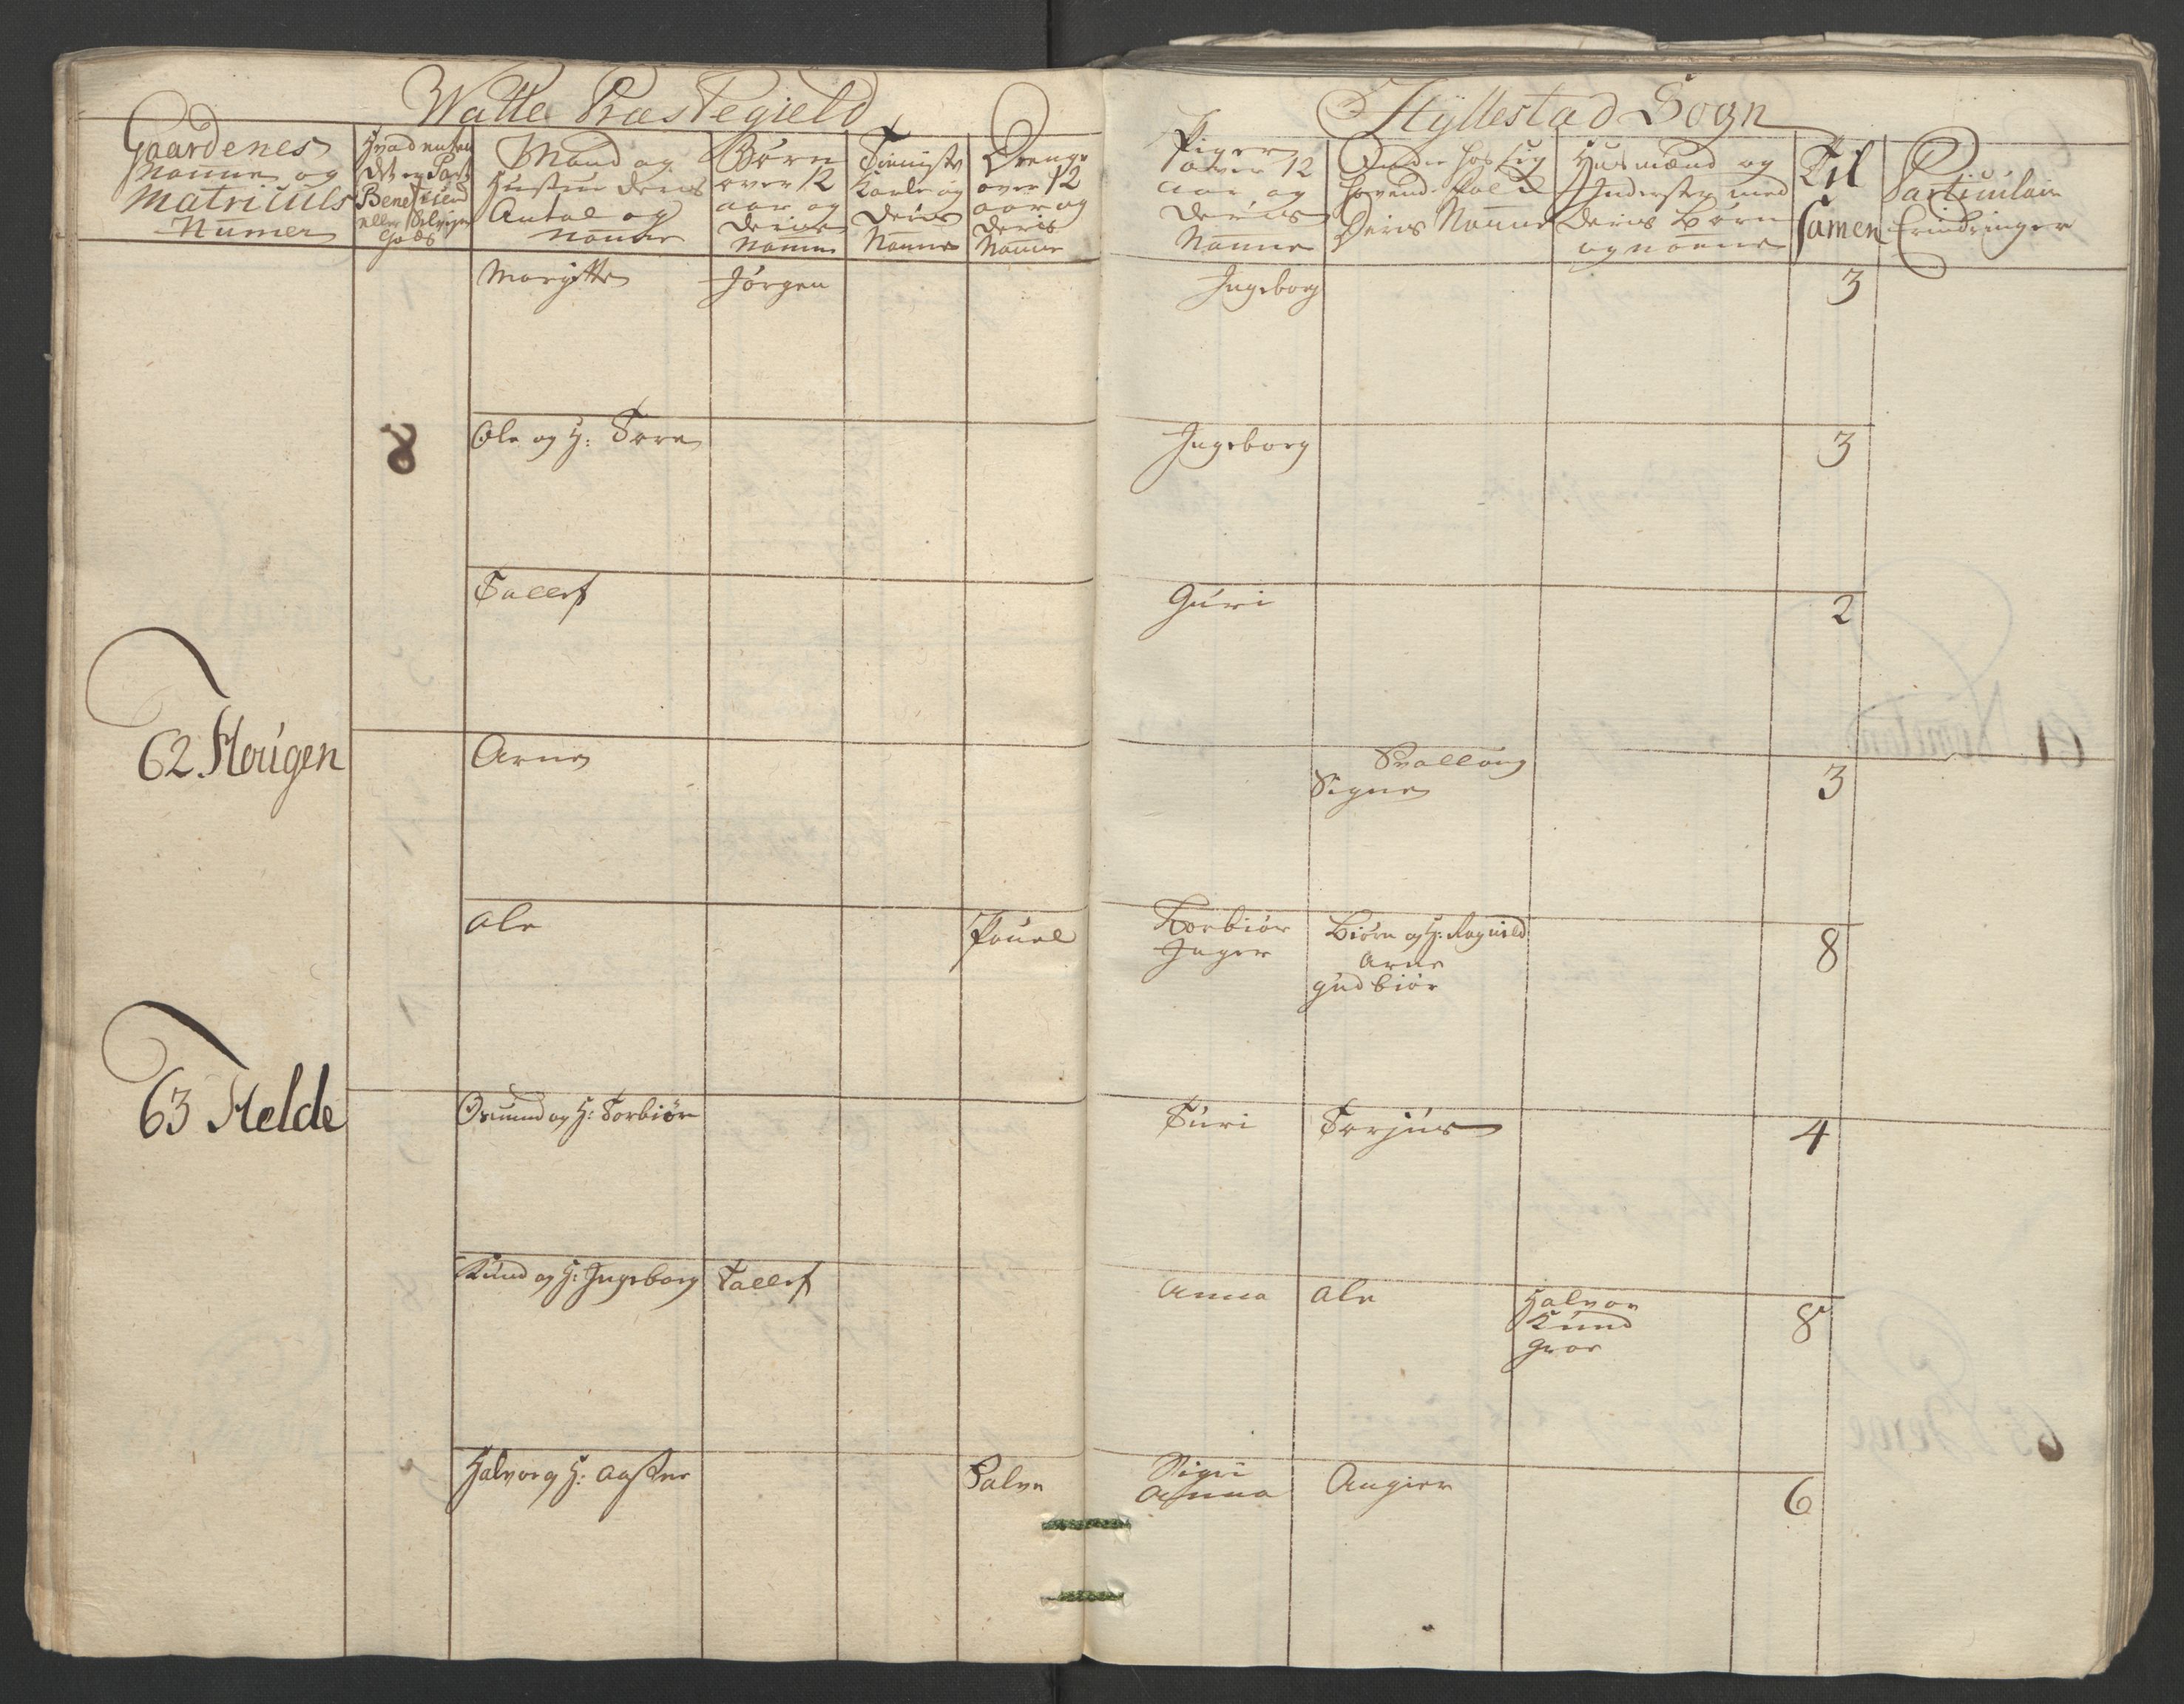 Walle Præstegield
Hyllestad Sogn
Gaardenes
Nanne og
Matriculs
Numer
Hvad enten
det er
Bene
eller Selveyer
Gods
Mand og
Hustrue deris
Antal og
Nanne
Børn
over 12
aar og
deris
Nanne
Tienniste
Karle og
deris
Nanne
Drenge
over 12
aar og
deris
Nanne
Piger
over 12
aar og
deris
Nanne
Andre hos sig
havende folck
Deris Nanne
Huusmænd og
Inderster med
deris Børn
og nanne
Til
samen
Particulair
Erindringer
Margitte
Jörgen
Ingeborg
3
8
Ole og H: Tore
Ingeborg
3
Tallef
Gúri
2
62 Hougen
Arne
Svallaug
Signe
3
Ole
Pouel
Torbiör
Inger
Biörn og H: Ragnild
Arne
gudbiör
8
63 Helde
Osmund og H: Torbiör
Túri
Torjús
4
Knud og H: Ingeborg
Tallef
Anna
Ole
Halvor
Knud
Groe
8
Halvor og H: Aaste
Salve
Sigri
Anna
Augier
6